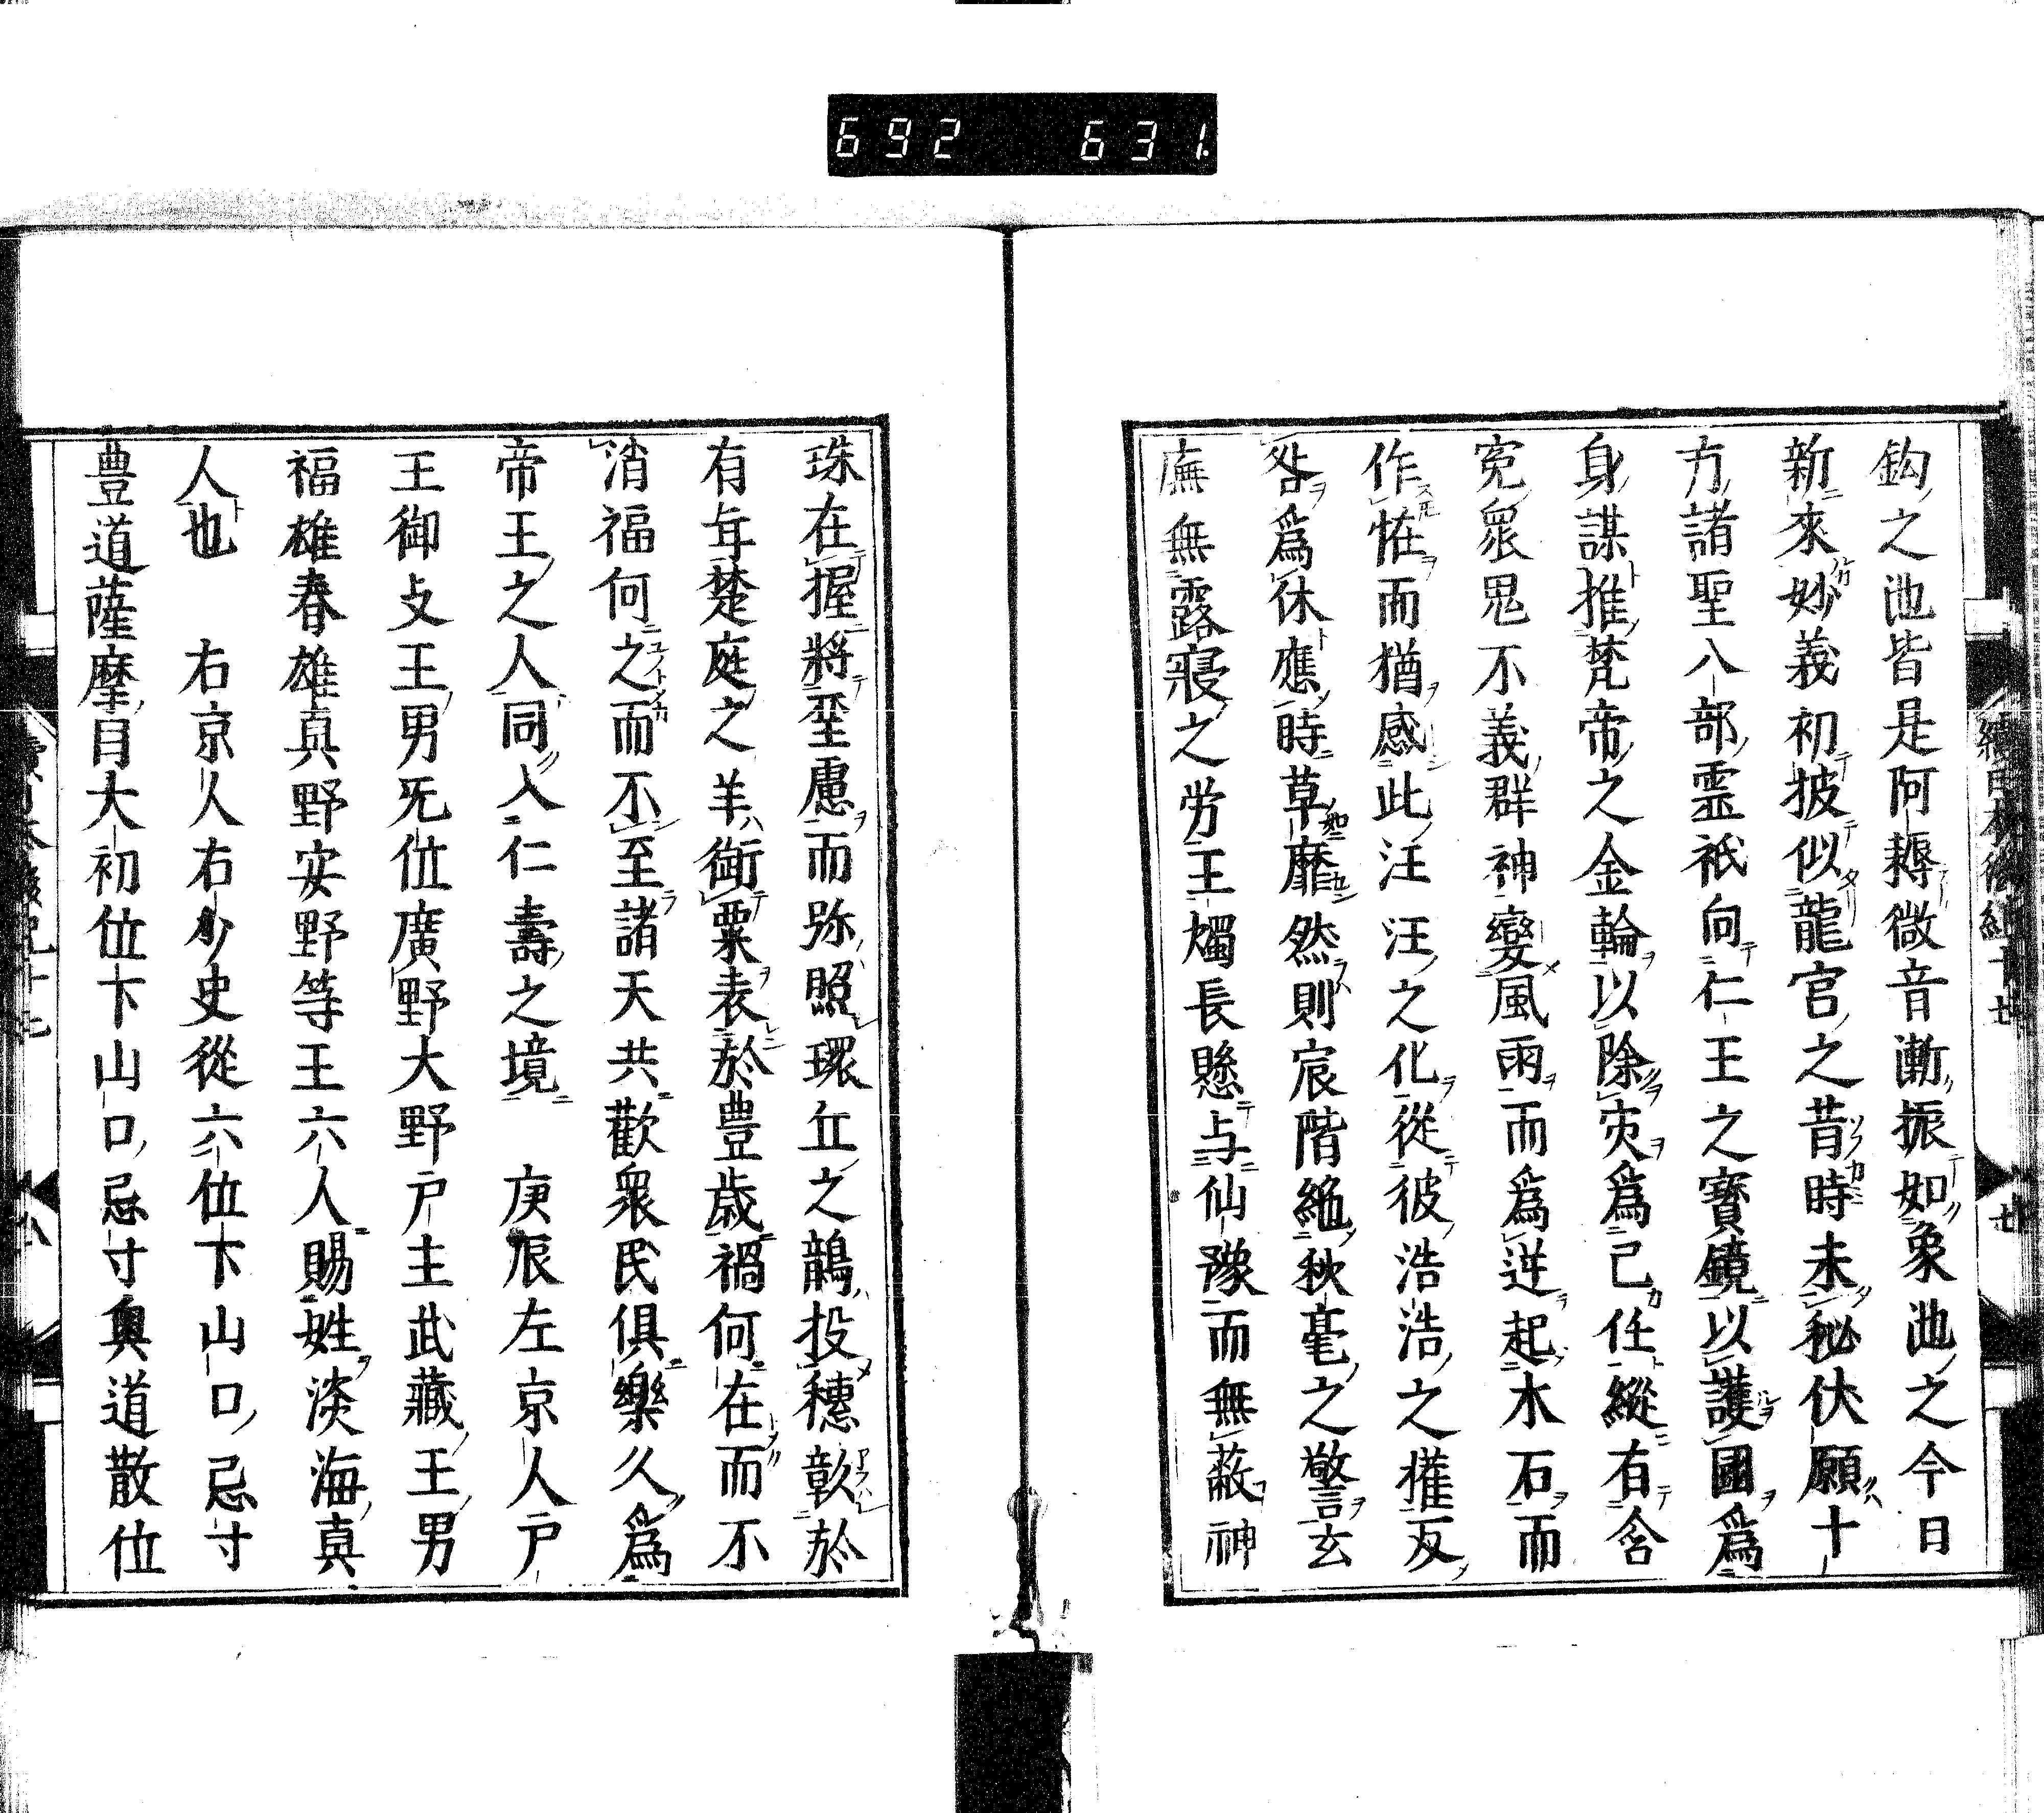 692 631.
鈎之池皆是阿耨微音漸振如象池之今日
新來妙義初披似龍宮之昔時未秘伏願十
方諸聖八部霊祇向仁王之寳鏡以護國爲
身謀推梵帝之金輪以除灾爲己任縱有含
寃衆鬼不義群神變風雨而爲逆起木石而
作恠而猶感此汪汪之化從彼浩浩之權反
咎爲休應時草靡然則宸階絶秋毫之警玄
廡無露寢之労玉燭長懸与仙豫而無蔽神
珠在握將埊慮而弥照環丘之鶕投穗彰於
有年楚庭之羊銜粟表於豊歳禍何在而不
消福何之而不至諸天共歡衆民俱樂久爲
帝王之人同入仁壽之境　庚辰左京人戸
王御攴王男旡位廣野大野戸主武藏王男
福雄春雄真野安野等王六人賜姓淡海真
人也　右京人右少史從六位下山口忌寸
豊道薩摩目大初位下山口忌寸奥道散位